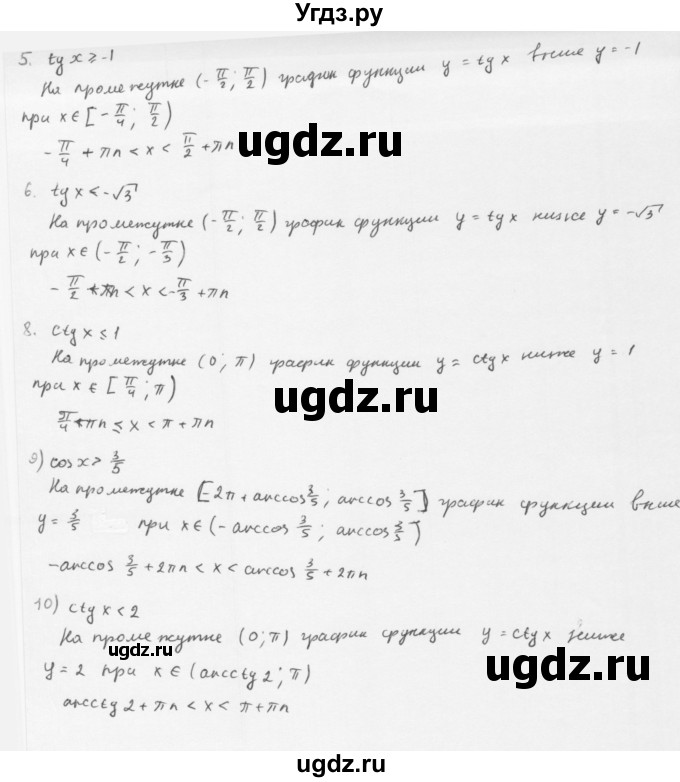 Угдз.ру
5. tg x ≥ -1
На промежутке (-π/2; π/2) график функции y = tg x выше y = -1
при x ∈ [-π/4; π/2)
-π/4 + πn < x < π/2 + πn
ugdz.ru
6. tg x < -√3
На промежутке (-π/2; π/2) график функции y = tg x ниже y = -√3
при x ∈ (-π/2; -π/3)
-π/2 + πn < x < -π/3 + πn
8. ctg x ≤ 1
На промежутке (0; π) график функции y = ctg x ниже y = 1
при x ∈ [π/4; π)
ugdz.ru
π/4 + πn ≤ x < π + πn
9) cos x > 3/5
На промежутке [-2π + arccos 3/5; arccos 3/5] график функции выше
y = 3/5 при x ∈ (-arccos 3/5; arccos 3/5)
ugdz.ru
-arccos 3/5 + 2πn < x < arccos 3/5 + 2πn
10) ctg x < 2
На промежутке (0; π) график функции y = ctg x ниже
ugdz.ru
y = 2 при x ∈ (arcctg 2; π)
ugdz.ru
arcctg 2 + πn < x < π + πn
ugdz.ru